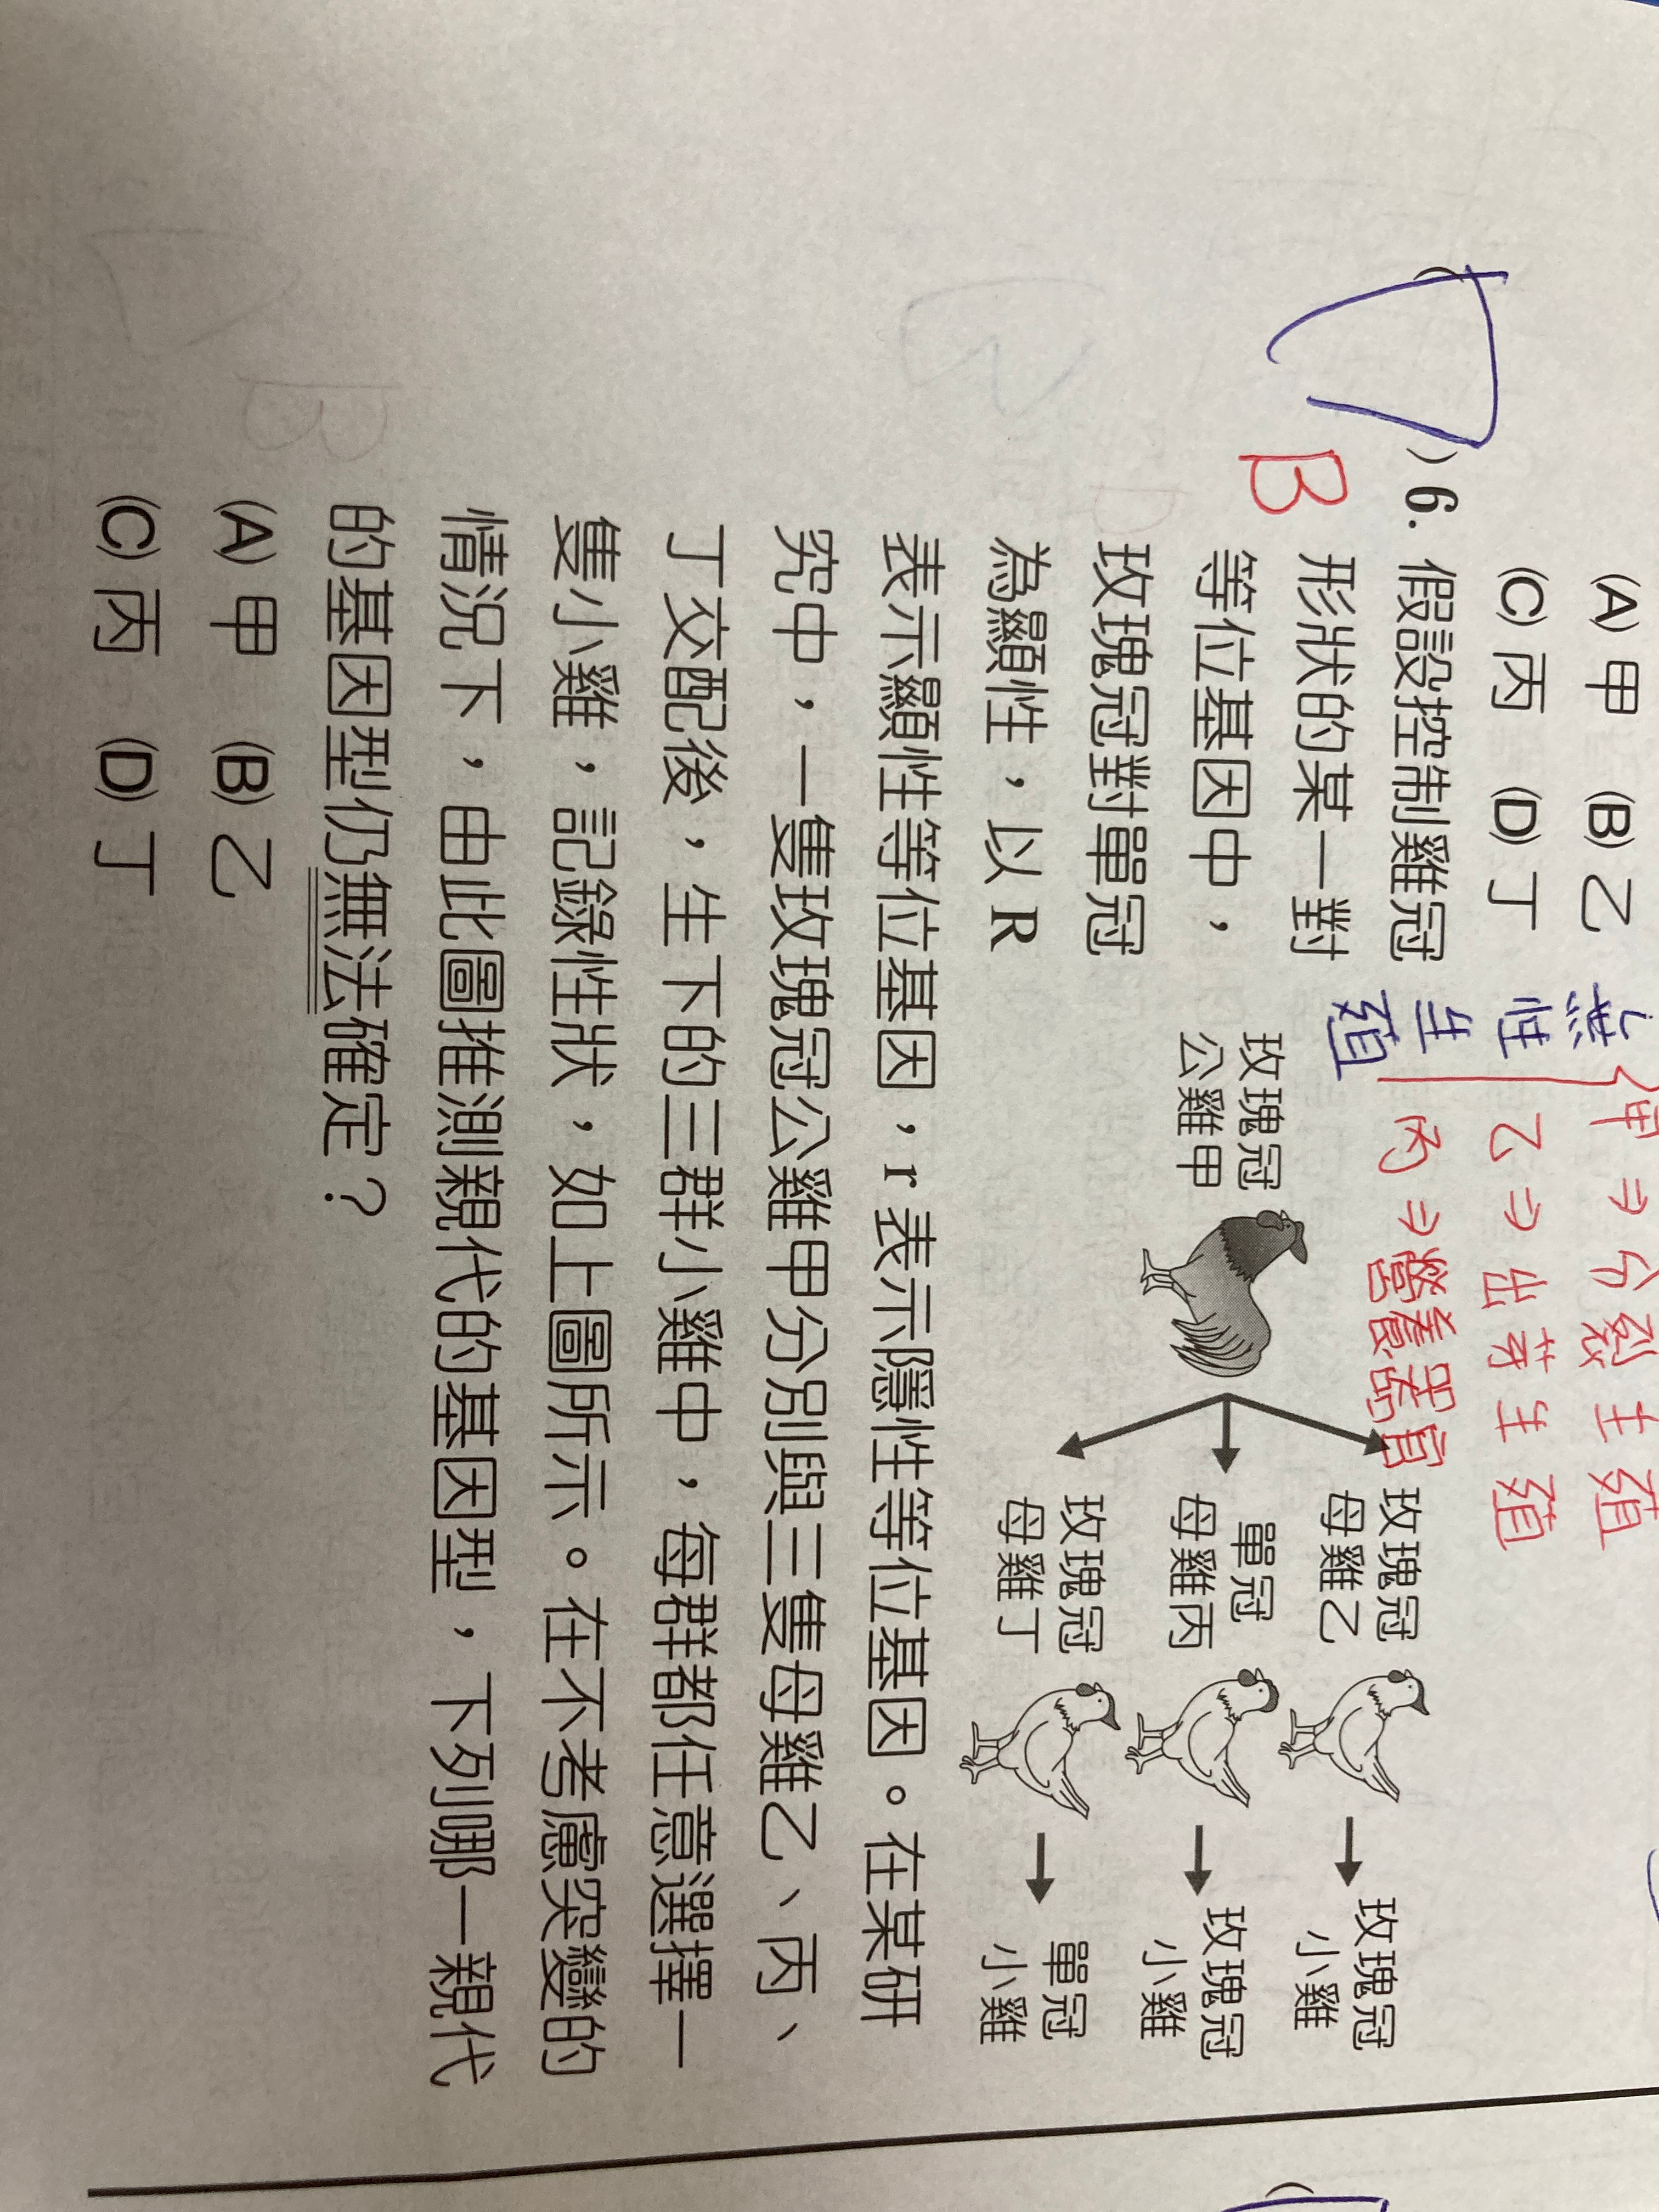 (A) 甲 (B) 乙
(C) 丙 (D) 丁
無性生殖
甲⇒分裂生殖
乙⇒出芽生殖
丙⇒營養器官
B
( )6. 假設控制雞冠
形狀的某一對
等位基因中，
玫瑰冠對單冠
為顯性，以 R
玫瑰冠
公雞甲
玫瑰冠
母雞乙
玫瑰冠
小雞
單冠
母雞丙
玫瑰冠
小雞
玫瑰冠
母雞丁
單冠
小雞
表示顯性等位基因，r 表示隱性等位基因。在某研
究中，一隻玫瑰冠公雞甲分別與三隻母雞乙、丙、
丁交配後，生下的三群小雞中，每群都任意選擇一
隻小雞，記錄性狀，如上圖所示。在不考慮突變的
情況下，由此圖推測親代的基因型，下列哪一親代
的基因型仍無法確定？
(A) 甲 (B) 乙
(C) 丙 (D) 丁